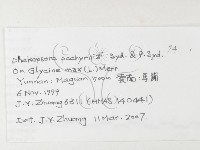 Phakopsora pachyrhizi Syd. & P. Syd.
On Glycine max (L.) Merr
Yunnan: Maguan 云南:马关
6 Nov. 1999
J.Y. Zhuang (HMAS 140441)
Det. J.Y. Zhuang 11 Mar. 2007